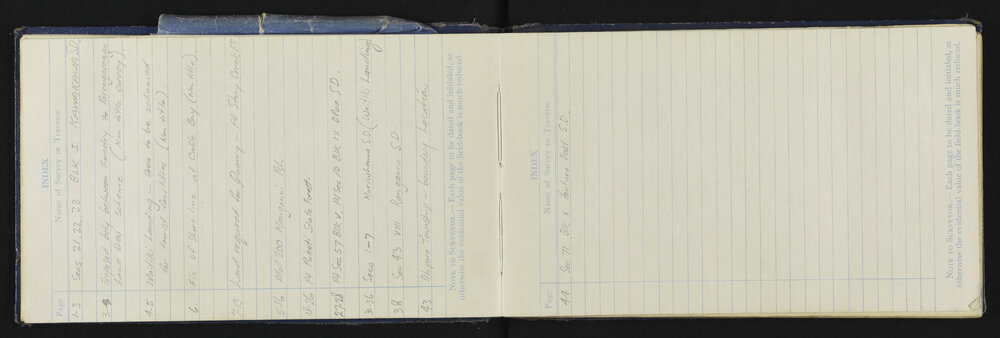 INDEX
Page Name of Survey or Traverse
1-3 Secs 21, 22, 23 BLK I KAWAKAWA S.D
3-4 Proposed bdy between Forestry &
Land Dev scheme (Non title survey)
4-5 Waitiki Landing - Area to be
for tourist facilities (Non title)
6 of shore line at Cable Bay (Non title)
7-13 Land required for Quarry - Pt Stony Creek
Allot 200 Mangonui Psh.
Pt State Forest.
27-28 Pt Sec 57 Blk V, Pt Sec 10 Blk IX S.D.
30-36 Secs 1-7 Muriwhenua S.D. (Waitiki Landing)
38 Sec 43 VIII Rangaunu S.D
43 Township - boundary Location
NOTE TO SURVEYOR.— Each page to be dated and initialed, as
otherwise the evidential value of the field-book is much reduced.
INDEX
Page Name of Survey or Traverse
44 Sec 71 Blk X East S.D.
NOTE TO SURVEYOR.— Each page to be dated and initialed, as
otherwise the evidential value of the field-book is much reduced.